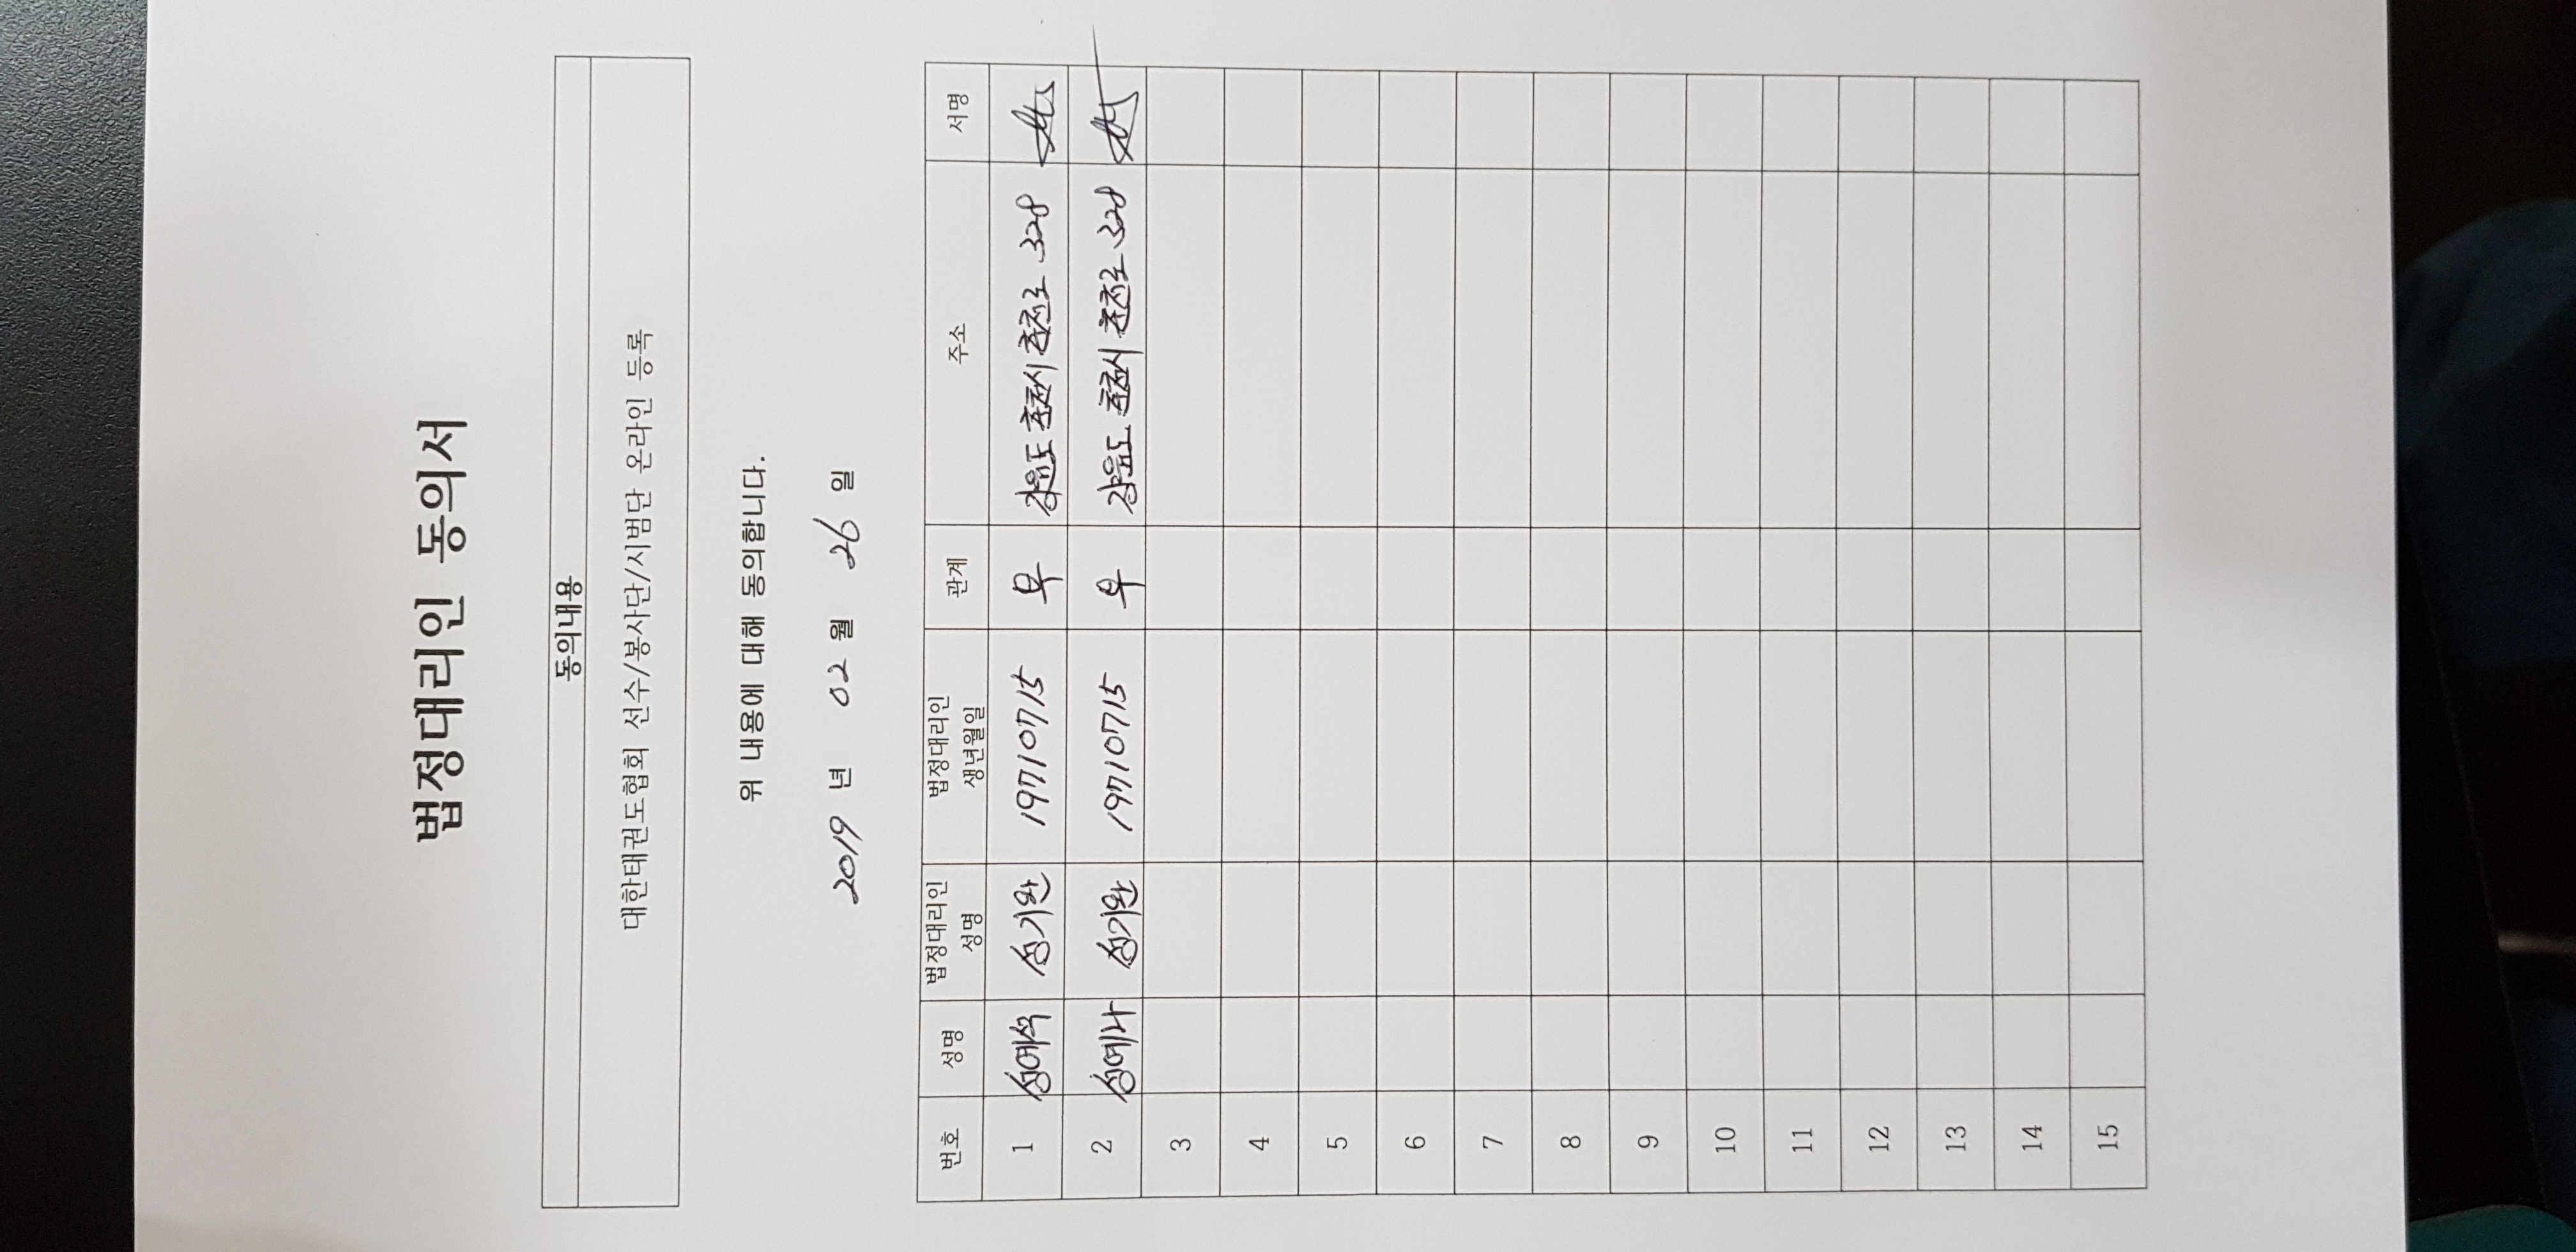 법정대리인 동의서
동의내용
대한태권도협회 선수/봉사단/시범단 온라인 등록
위 내용에 대해 동의합니다.
2019 년 02 월 26 일
번호 성명 법정대리인 성명 법정대리인 생년월일 관계 주소 서명
1 성예석 성기완 19710715 부 강원도 춘천시 춘천로 328
2 성예나 성기완 19710715 부 강원도 춘천시 춘천로 328
3
4
5
6
7
8
9
10
11
12
13
14
15